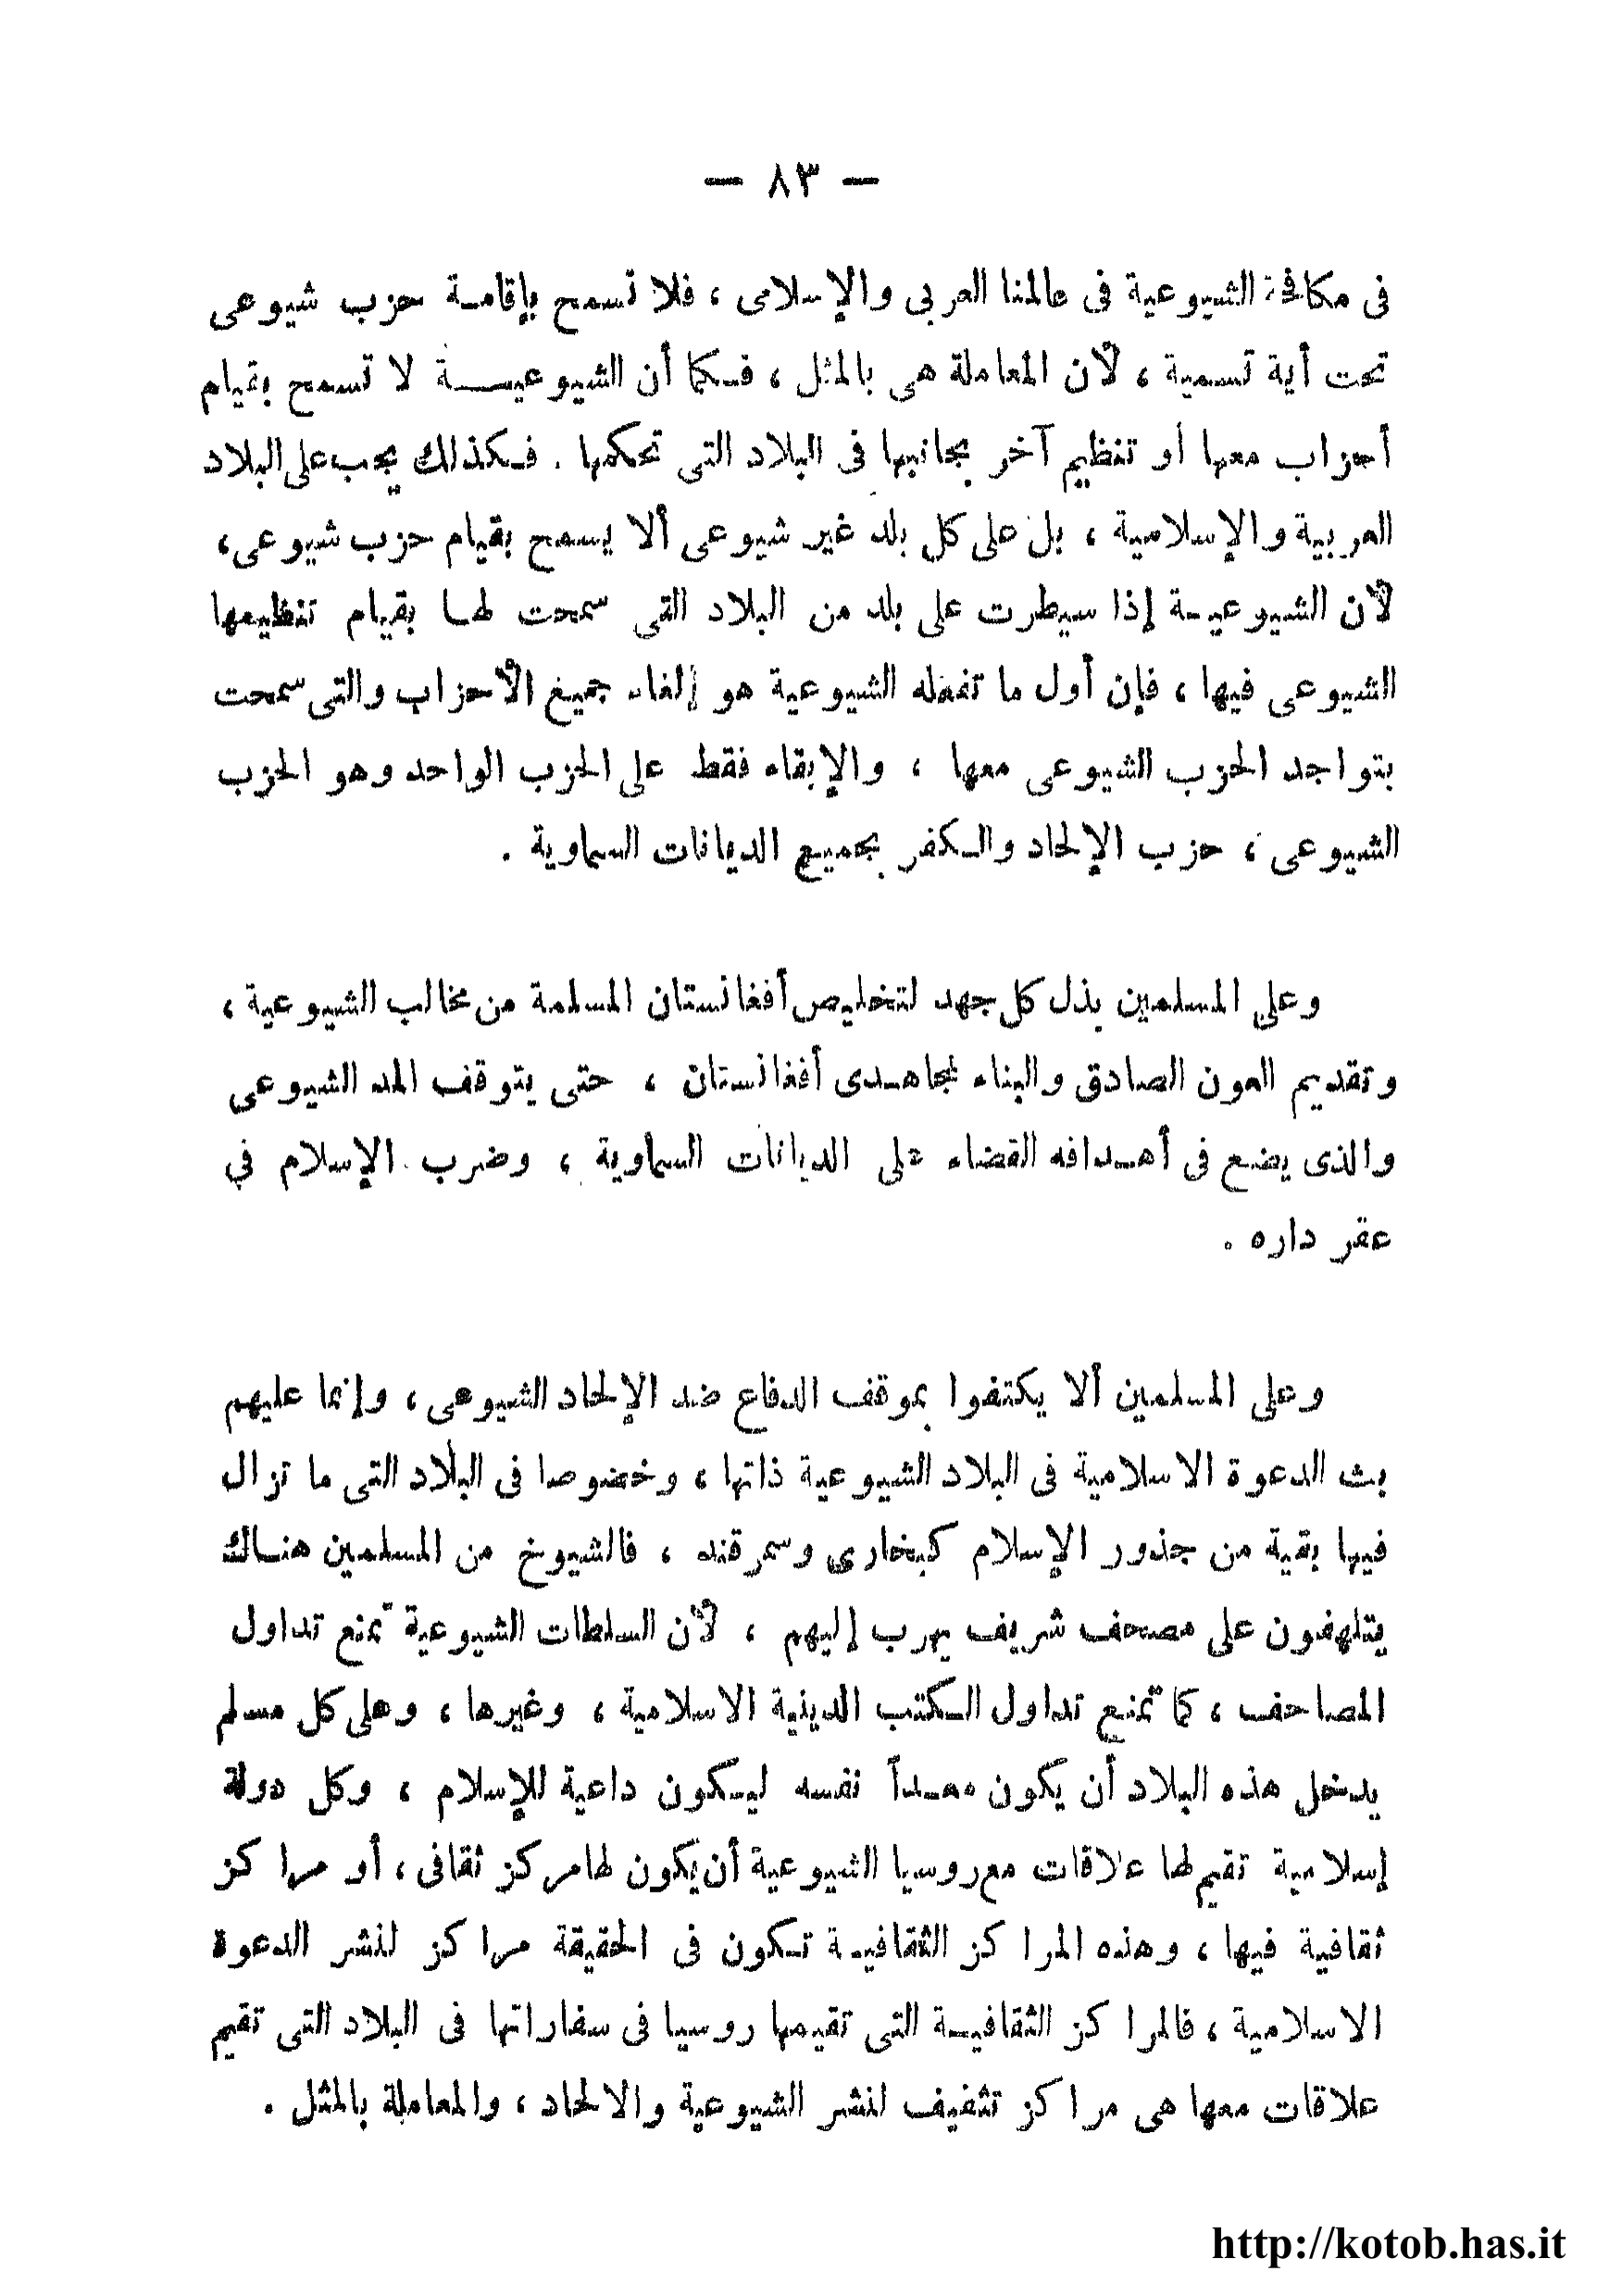 — ٨٣ —
فى مكافحة الشيوعية فى عالمنا العربى والإسلامى ، فلا تسمح بإقامة حزب شيوعى
تحت أية تسمية ، لأن المعاملة هى بالمثل ، فكما أن الشيوعية لا تسمح بقيام
أحزاب معها أو تنظيم آخر بجانبها فى البلاد التى تحكمها . فكذلك يجب على البلاد
العربية والإسلامية ، بل على كل بلد غير شيوعى ألا يسمح بقيام حزب شيوعى ،
لأن الشيوعية إذا سيطرت على بلد من البلاد التى سمحت لها بقيام تنظيمها
الشيوعى فيها ، فإن أول ما تفعله الشيوعية هو إلغاء جميع الأحزاب والتى سمحت
بتواجد الحزب الشيوعى معها ، والإبقاء فقط على الحزب الواحد وهو الحزب
الشيوعى ، حزب الإلحاد والكفر بجميع الديانات السماوية .
وعلى المسلمين بذل كل جهد لتخليص أفغانستان المسلمة من مخالب الشيوعية ،
وتقديم العون الصادق والبناء لمجاهدى أفغانستان ، حتى يتوقف المد الشيوعى
والذى يضع فى أهدافه القضاء على الديانات السماوية ، وضرب الإسلام في
عقر داره .
وعلى المسلمين ألا يكتفوا بموقف الدفاع ضد الإلحاد الشيوعى ، وإنما عليهم
بث الدعوة الاسلامية فى البلاد الشيوعية ذاتها ، وخصوصا فى البلاد التى ما تزال
فيها بقية من جذور الإسلام كبخارى وسمرقند ، فالشيوخ من المسلمين هناك
يتلهفون على مصحف شريف يهرب إليهم ، لأن السلطات الشيوعية تمنع تداول
المصاحف ، كما تمنع تداول الكتب الدينية الاسلامية ، وغيرها ، وعلى كل مسلم
يدخل هذه البلاد أن يكون معداً نفسه ليكون داعية للإسلام ، وكل دولة
إسلامية تقيم لها علاقات مع روسيا الشيوعية أن يكون لها مركز ثقافى ، أو مراكز
ثقافية فيها ، وهذه المراكز الثقافية تكون فى الحقيقة مراكز لنشر الدعوة
الاسلامية ، فالمراكز الثقافية التى تقيمها روسيا فى سفاراتها فى البلاد التى تقيم
علاقات معها هى مراكز تثفيف لنشر الشيوعية والالحاد ، والمعاملة بالمثل .
http://kotob.has.it